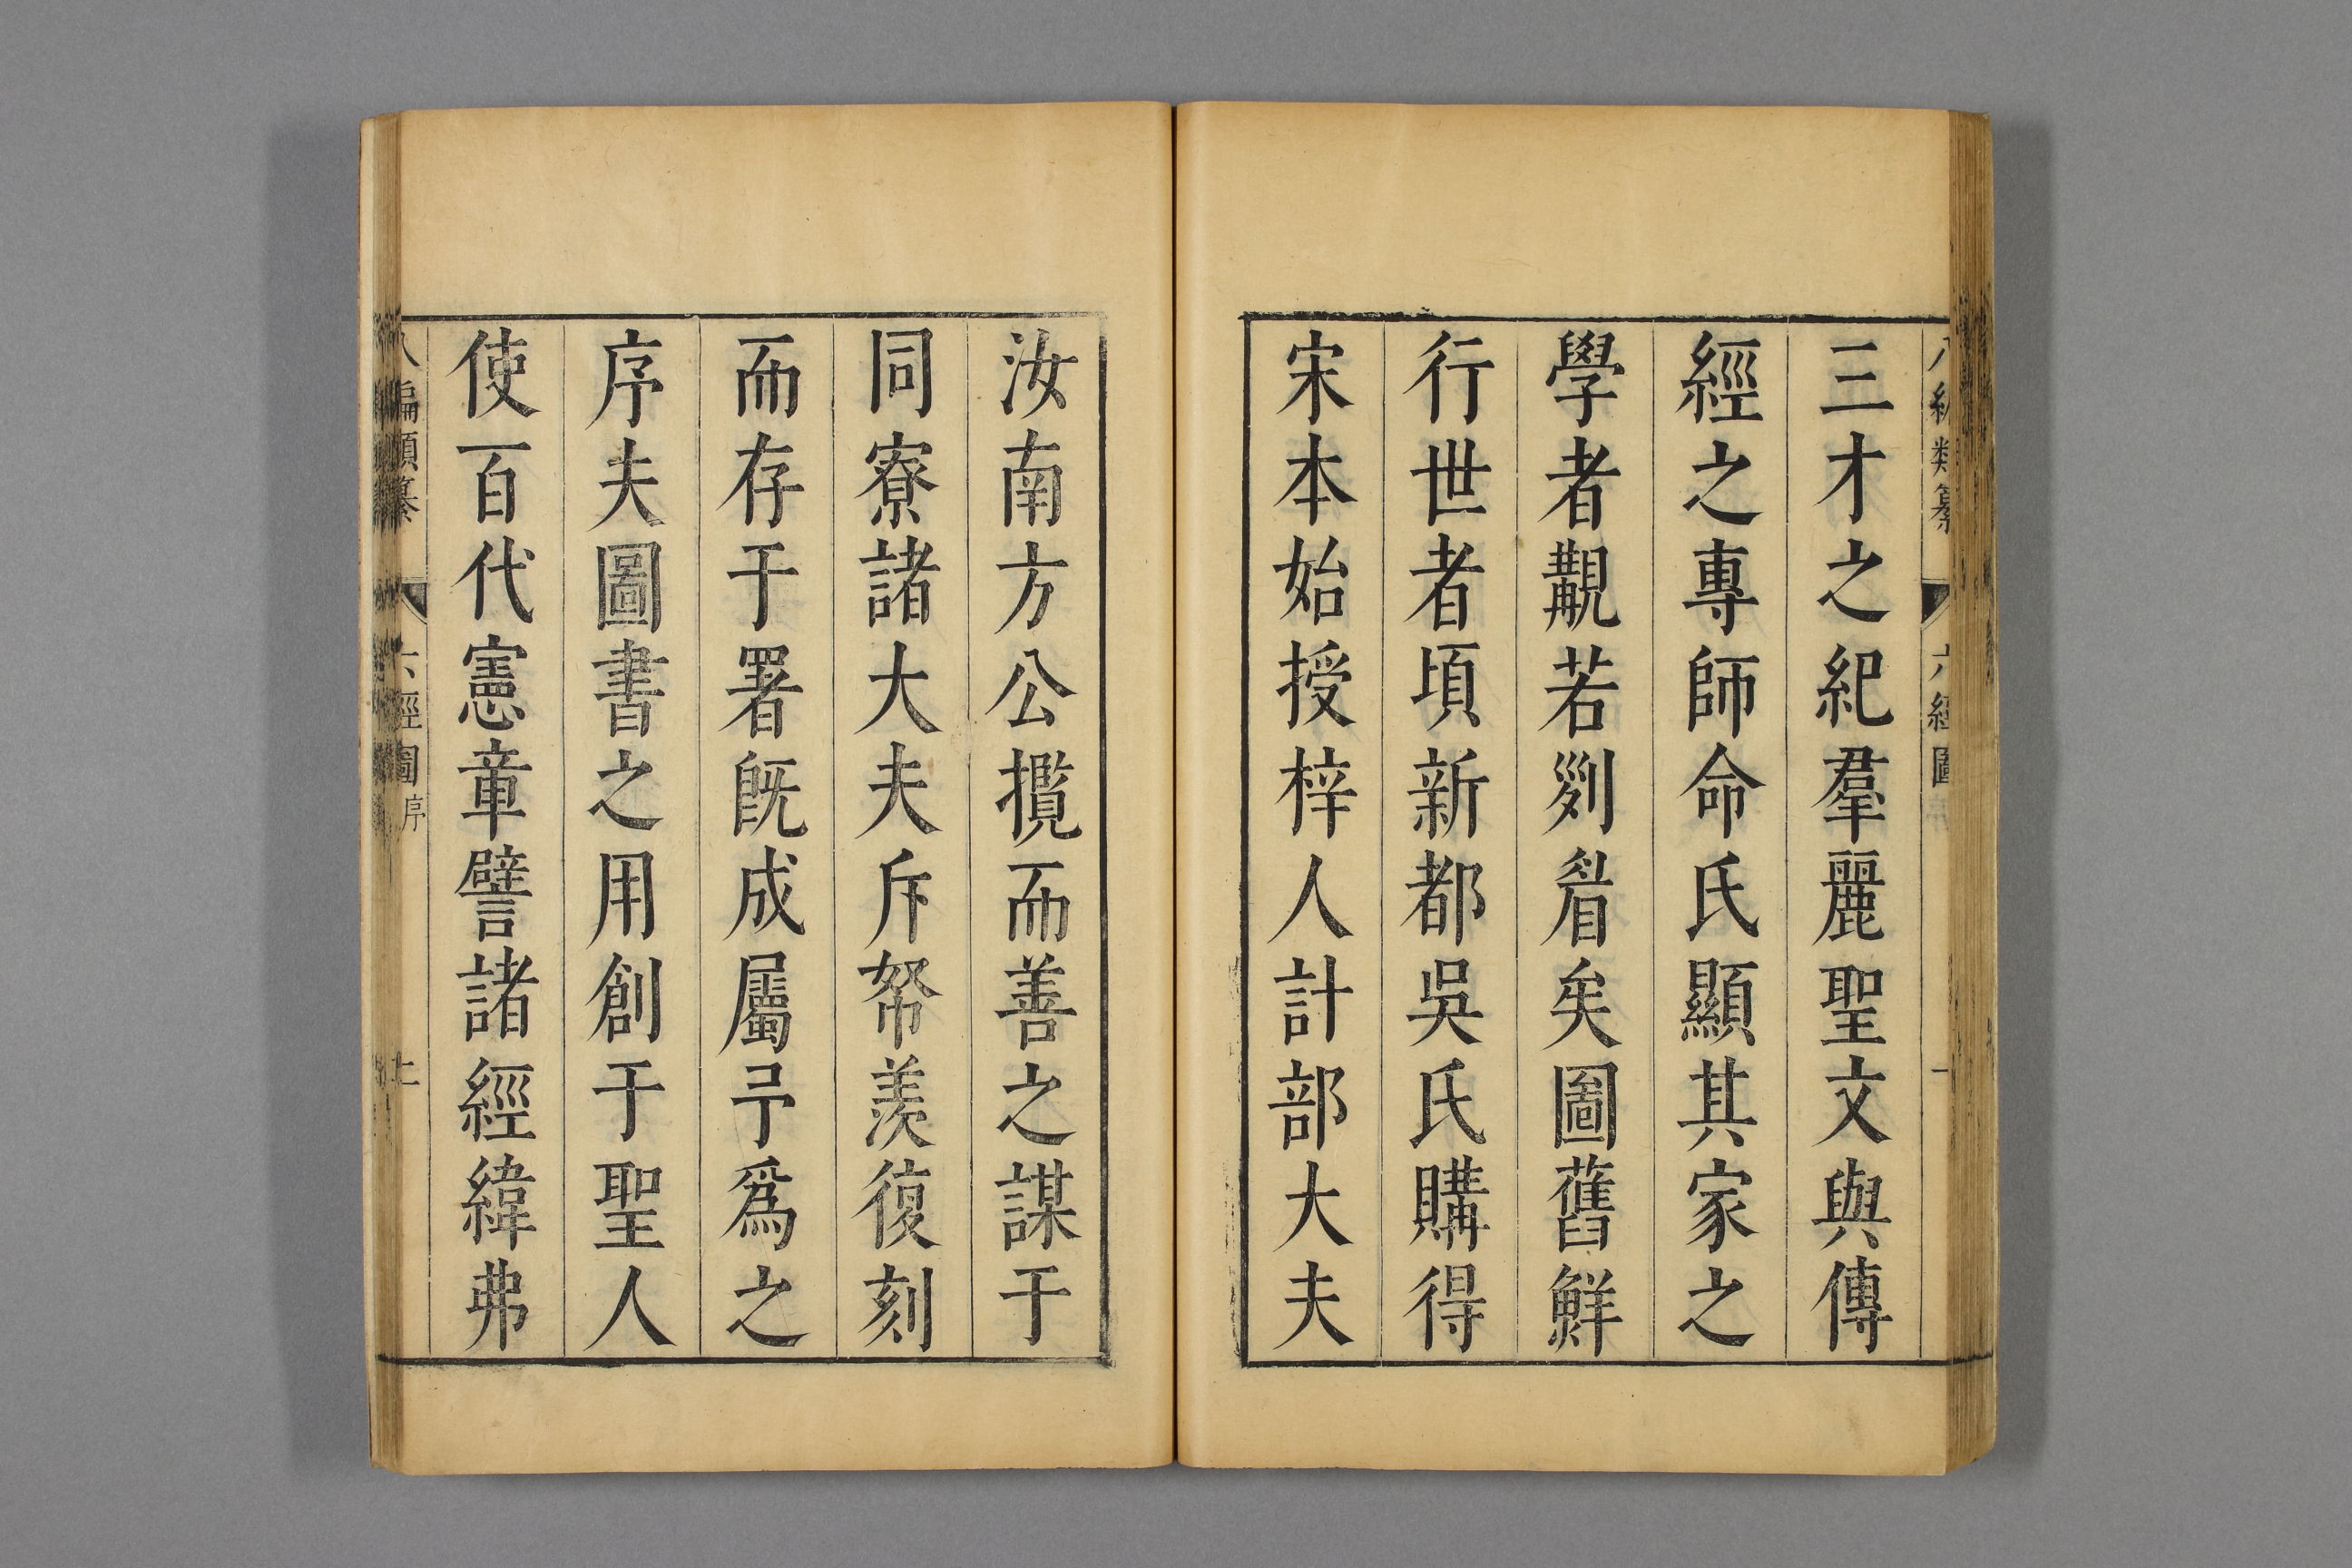 八編類纂 六經圖 一
三才之紀羣麗聖文與傳
經之專師命氏顯其家之
學者覯若列睂矣圖舊鮮
行世者頃新都吳氏購得
宋本始授梓人計部大夫
汝南方公攬而善之謀于
同寮諸大夫斥帑羨復刻
而存于署旣成屬予爲之
序夫圖書之用創于聖人
使百代憲章譬諸經緯弗
八編類纂 六經圖序